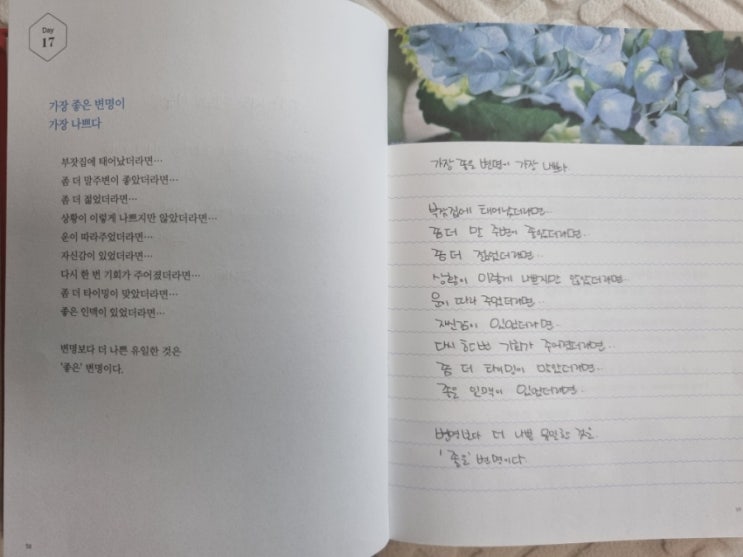 Day
17
가장 좋은 변명이
가장 나쁘다
부잣집에 태어났더라면…
좀 더 말주변이 좋았더라면…
좀 더 젊었더라면…
상황이 이렇게 나쁘지만 않았더라면…
운이 따라주었더라면…
자신감이 있었더라면…
다시 한 번 기회가 주어졌더라면…
좀 더 타이밍이 맞았더라면…
좋은 인맥이 있었더라면…
변명보다 더 나쁜 유일한 것은
'좋은' 변명이다.
가장 좋은 변명이 가장 나쁘다
부잣집에 태어났더라면…
좀 더 말 주변이 좋았더라면…
좀 더 젊었더라면…
상황이 이렇게 나쁘지만 않았더라면
운이 따라 주었더라면…
자신감이 있었더라면…
다시 한번 기회가 주어졌더라면…
좀 더 타이밍이 맞았더라면…
좋은 인맥이 있었더라면
변명보다 더 나쁜 유일한 것은
'좋은' 변명이다